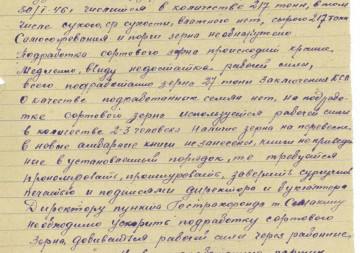 30/I-46г числится в количестве 217 тонн, в том
числе сухого, ср. сухости, влажного нет, сырого 217 тонн
Самосогревания и порчи зерна необнаружено
Подработка сортового зерна происходит крайне
Медленно, ввиду недостатка рабочей силы,
всего подработано зерна 37 тонн Заключения КСЛ
О качестве подработанных семян нет, на подработке
сортового зерна используется рабочей силы
в количестве 2-3 человека Налишо зерна на перевалке
в новые амбарные книги незанесены, книги не приведенные
в установленный порядок, то требуется
пронумеровать, прошнуровать, заверить сургучной
печатью и подписями директора и бухгалтера
Директору пункта Госстрахфонда т.
необходимо ускорить подработку сортового
зерна, добиваться рабочей силы через районные